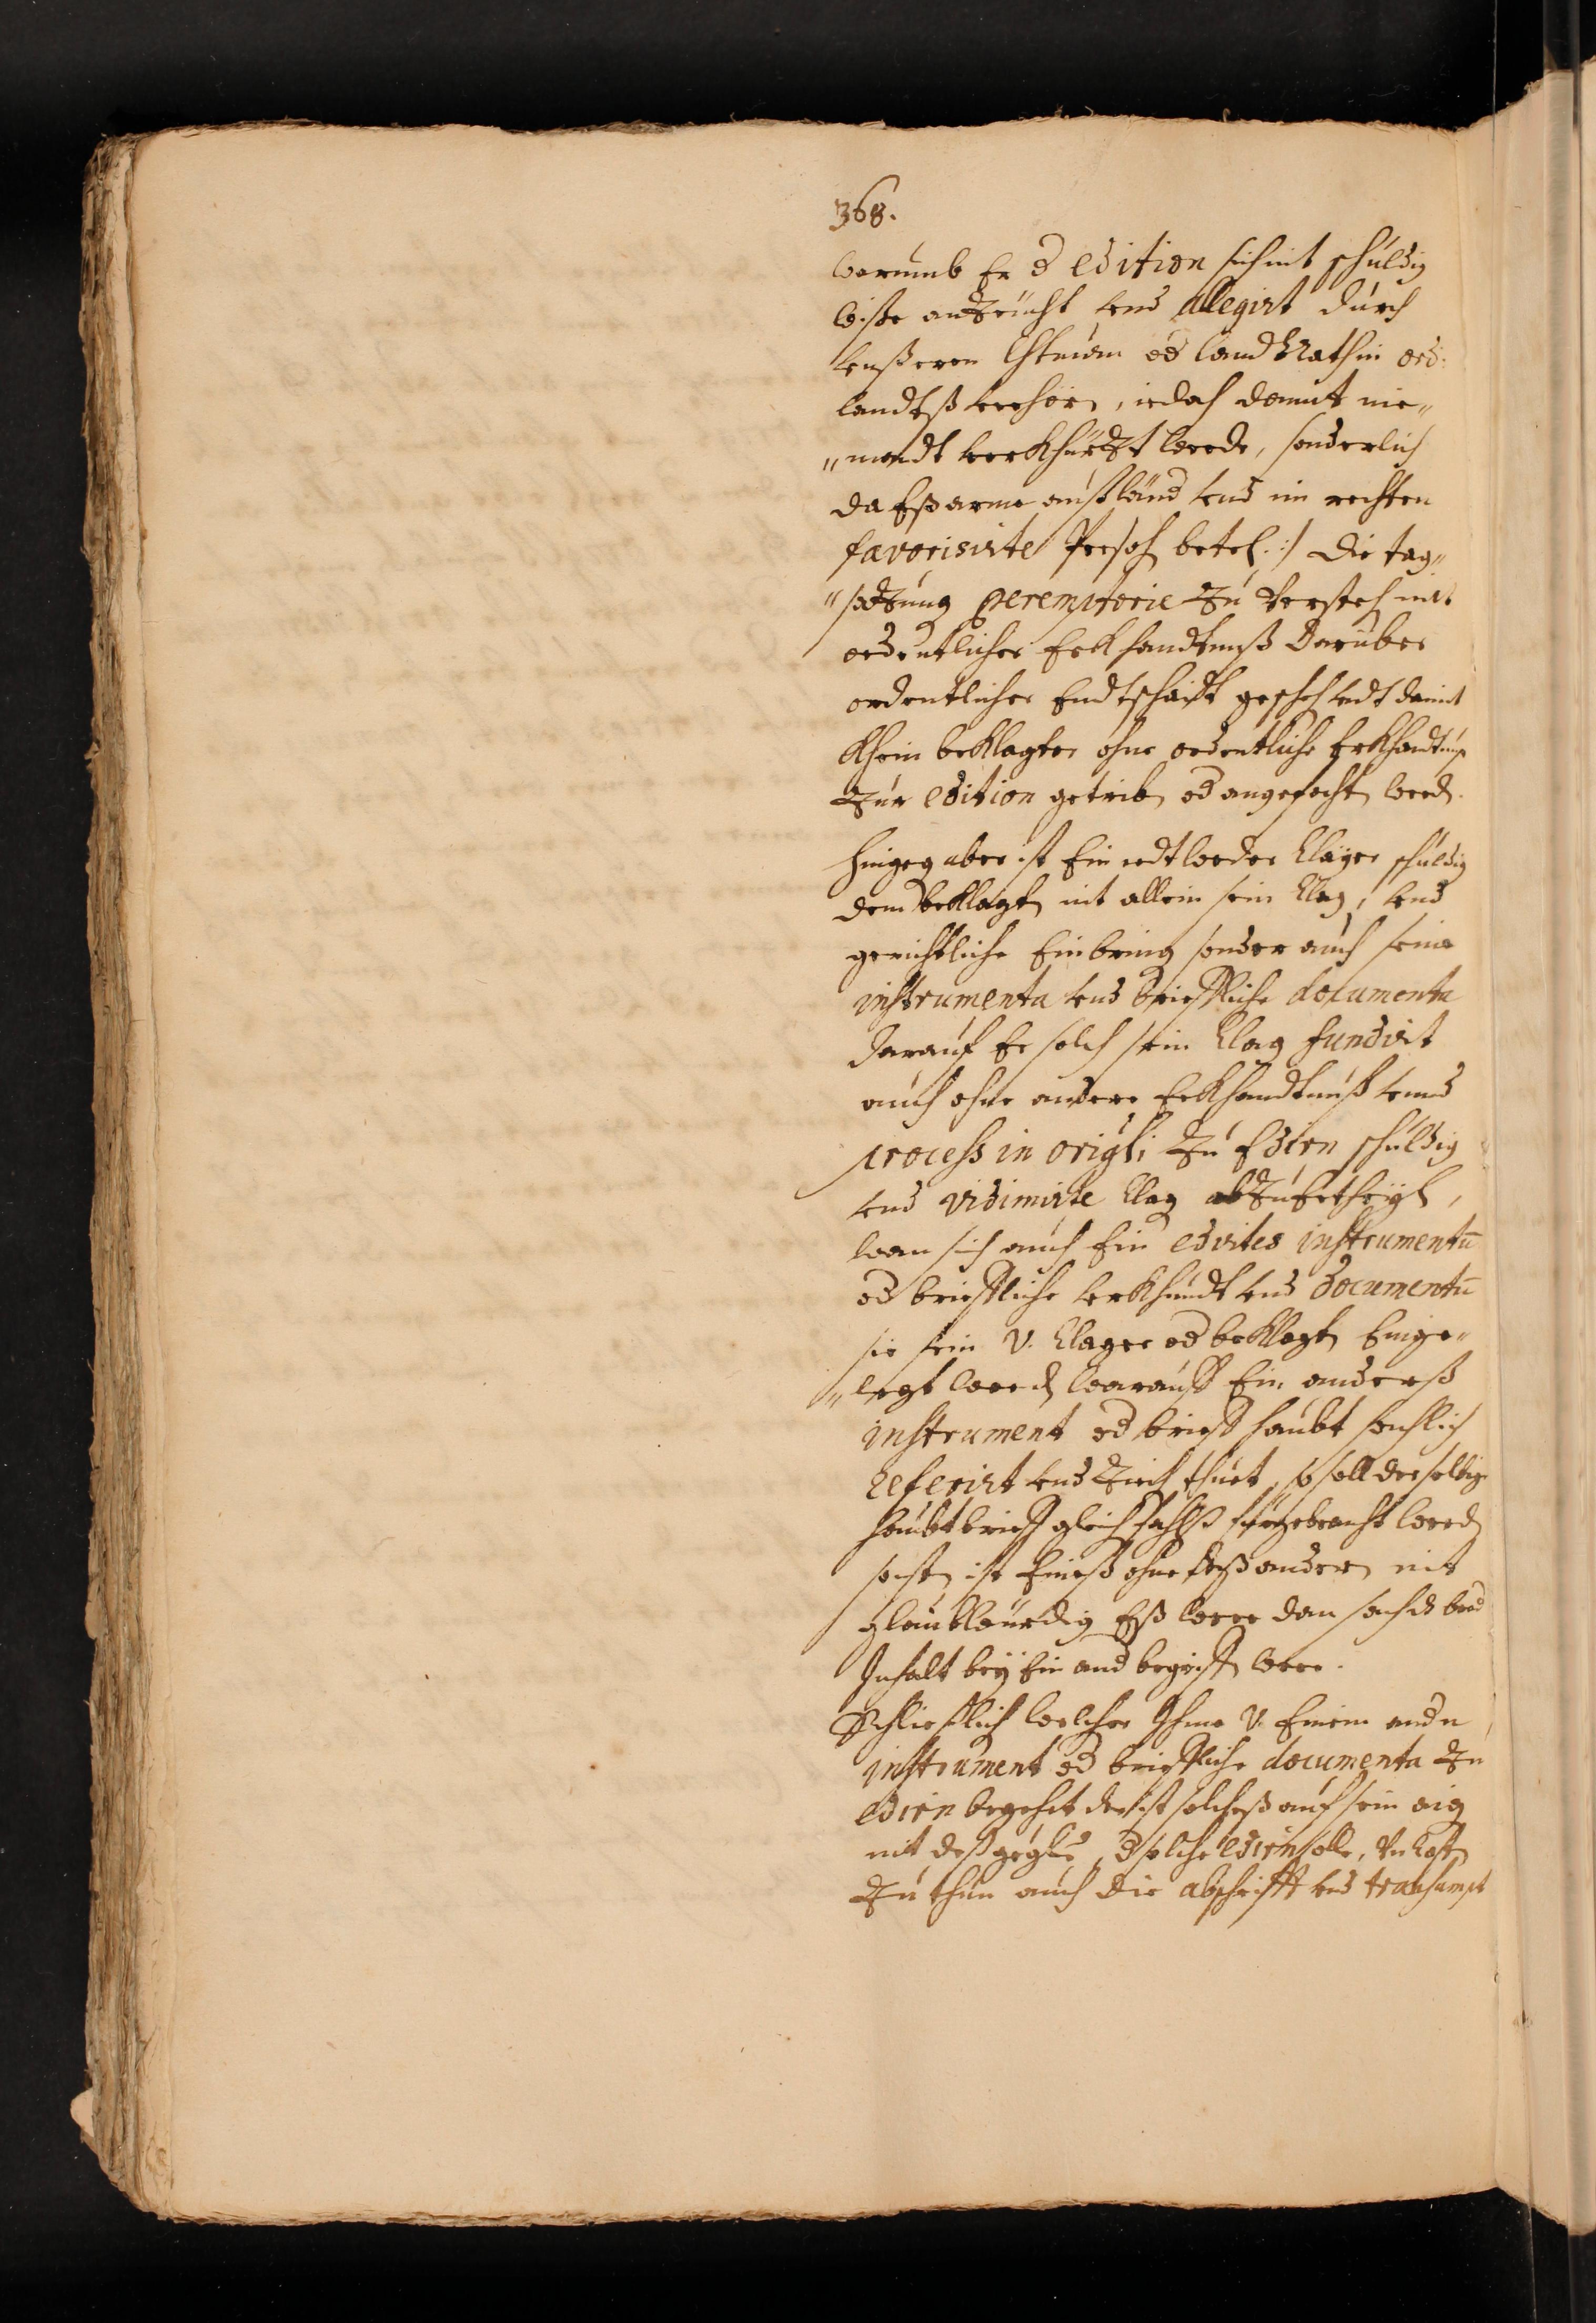 368.
warumb Er d edition sich nit schuldig
wisse anzeucht vnd allegirt durch
vnsseren od landtRath in ord:
landtß verhör, iedoch damit nie„
„mandt verkhürzt werde, sonderlich
da Eß arme außländ vnd im rechten
favorisirte Persoh betr. :/ die tag„
„satzung peremptorie zu versteh mit
ordentlicher Erkhandtnuß darüber
ordentlicher Endtschaidt gescheh damit
Khein beklagter ohne ordentliche Erkhandtnuß
zur edition getrib od angefocht werd.
hingeg aber ist Ein iedtweder Clager schuldig
dem beklagt nit allein sein Clag, vnd
gerichtliche Einbring sonder auch seine
instrumenta vnd brieffliche documenta
darauf Er solch sein Clag fundirt
auch ohne andere Erkhandtnuß vnd
process in origli zu Edirn schuldig
vnd vidimirte Clag
wan sich auch Ein edirtes instrumentū
od brieffliche vrkhundt vnd documentū
sie sein v. Clager od beklagt Einge„
„legt werd warauff Ein anderß
instrument od brieff haubt sechlich
referirt vnd zieh thuet, so soll der selbige
haubtbrieff gleichfahlß fürgebracht werd
sonst ist Eineß ohne deß ander nit
glaubwürdig Eß were dan sach
Inhalt bey Ein and begriff were.
Schließlich welcher Ihme v. Einem andn
instrument od brieffliche documenta zu
edirn begehrt der ist solcheß auf sein aig
nit deß d solche edirn solle, vncost
zu thun auch die abschrifft vnd transumpt